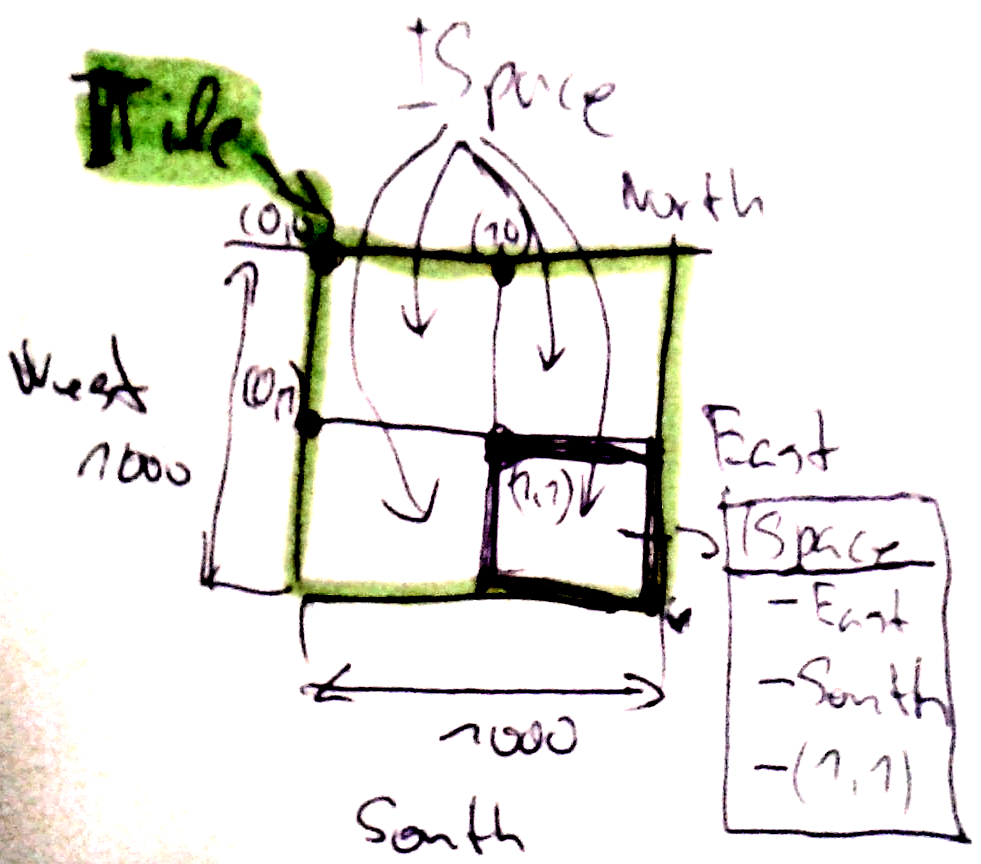 ISpace
ITile
North
(0,0)
(1,0)
West
(0,1)
1000
East
(1,1)
ISpace
- East
- South
- (1,1)
1000
South